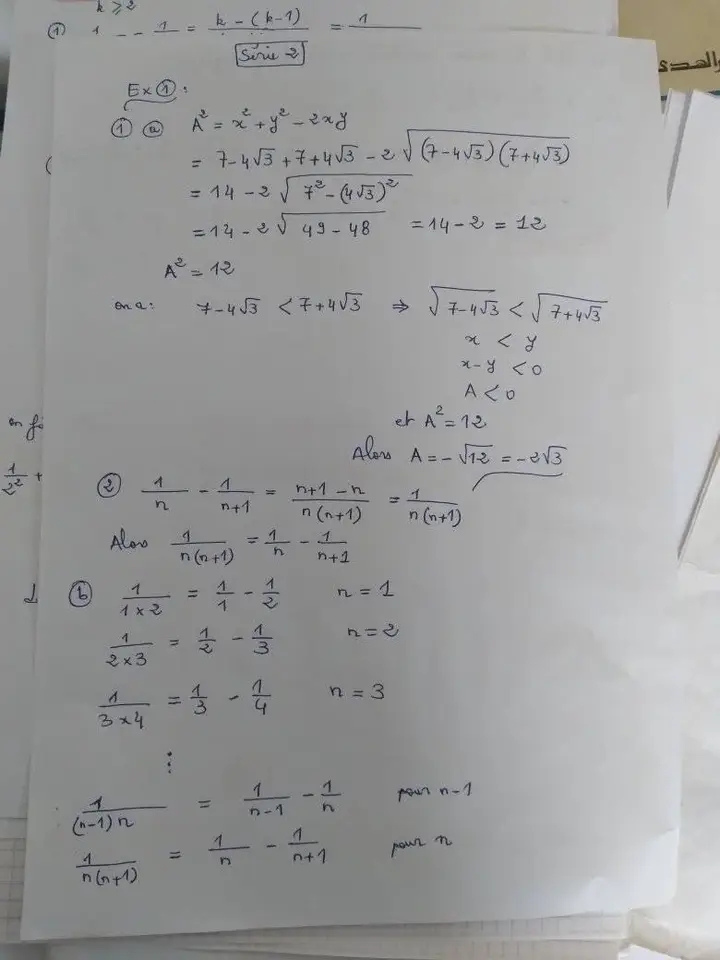 k ≥ 2
① 1 - - 1 = k - (k-1) / = 1
Série 2
Ex ① :
① ⓐ A² = x² + y² - 2xy
= 7-4√3 + 7+4√3 - 2 √((7-4√3)(7+4√3))
= 14 - 2 √(7² - (4√3)²)
= 14 - 2 √(49 - 48) = 14 - 2 = 12
A² = 12
on a : 7-4√3 < 7+4√3 ⇒ √(7-4√3) < √(7+4√3)
x < y
x-y < 0
A < 0
et A² = 12
Alors A = -√12 = -2√3
② 1/n - 1/(n+1) = (n+1-n)/(n(n+1)) = 1/(n(n+1))
Alors 1/(n(n+1)) = 1/n - 1/(n+1)
ⓑ 1/(1×2) = 1/1 - 1/2 n = 1
1/(2×3) = 1/2 - 1/3 n = 2
1/(3×4) = 1/3 - 1/4 n = 3
⋮
1/((n-1)n) = 1/(n-1) - 1/n pour n-1
1/(n(n+1)) = 1/n - 1/(n+1) pour n
on
1/2² +
والهدى